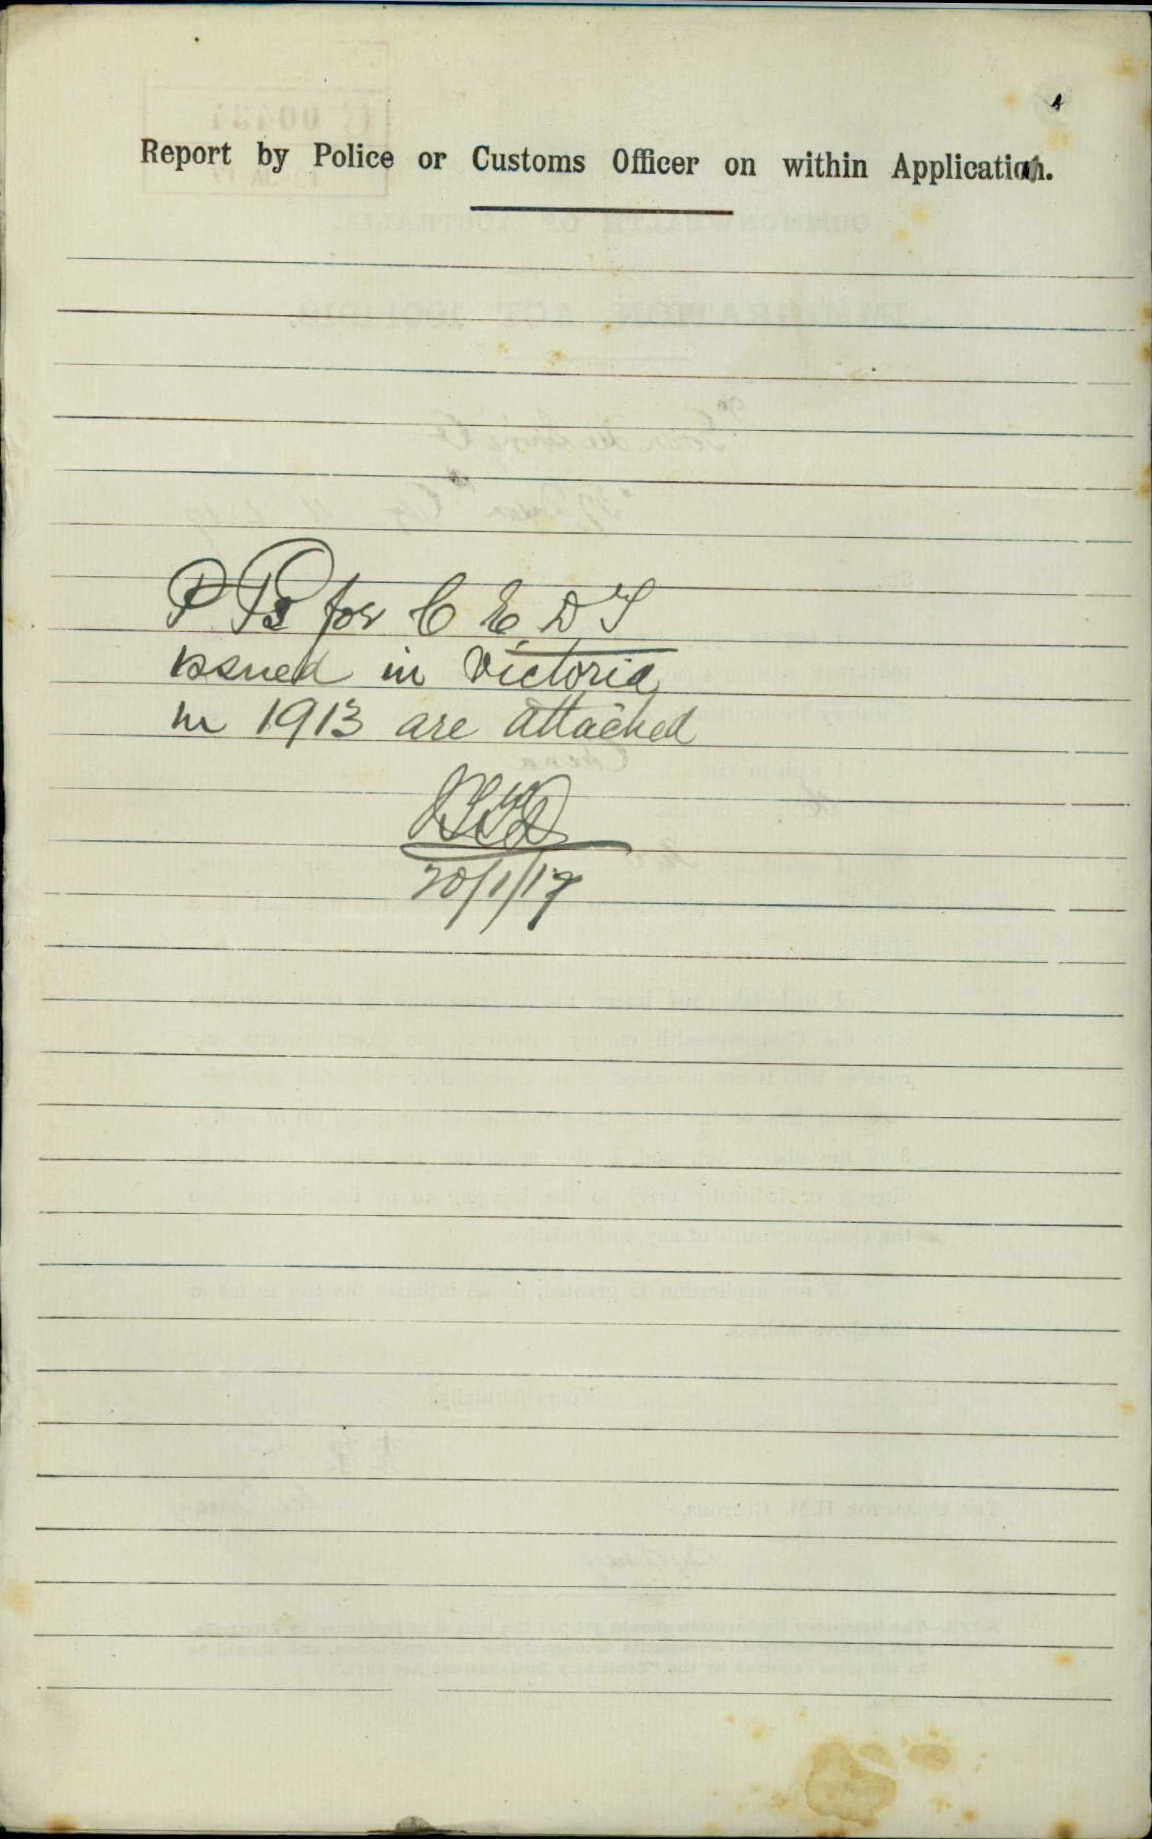 Report by Police or Customs Officer on within Application.
P Ps for C E D T
issued in Victoria
in 1913 are attached
20/1/17